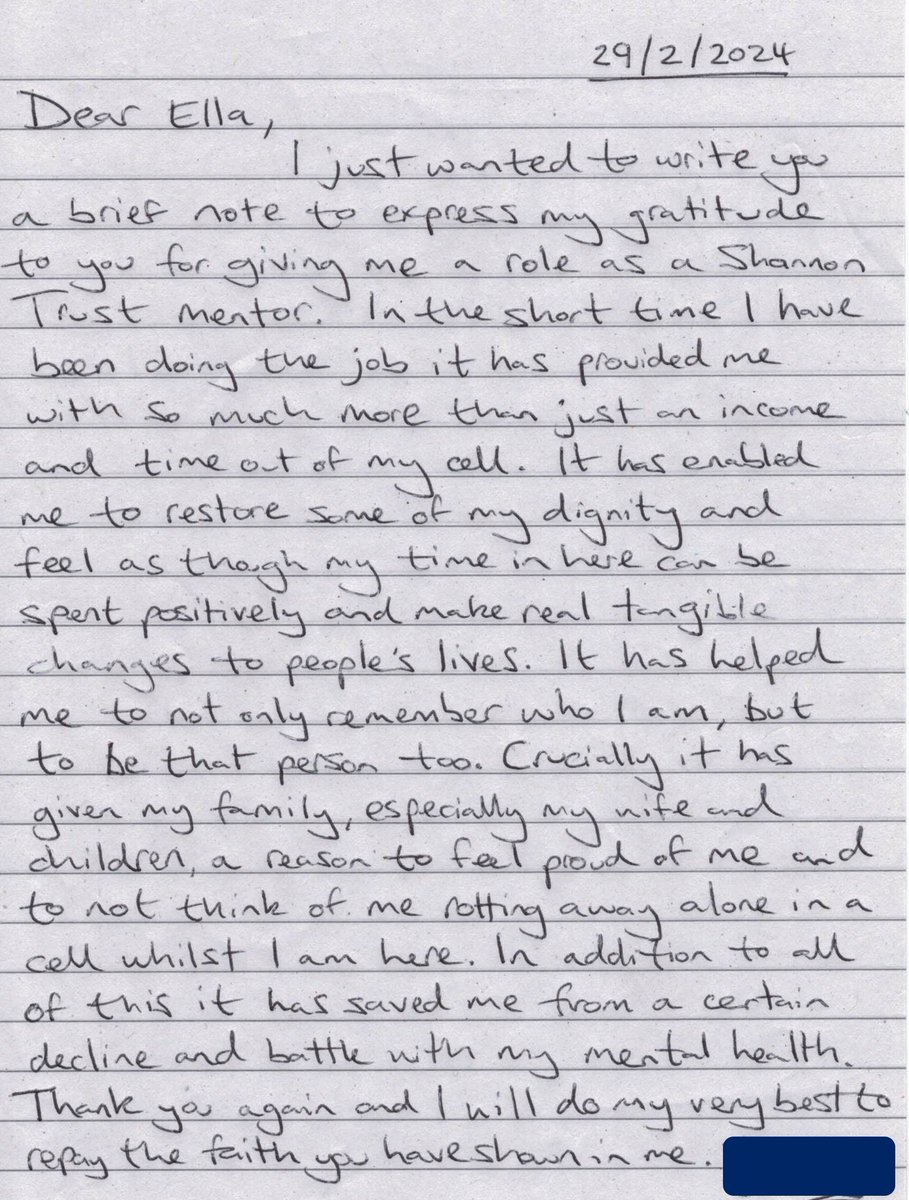 29/2/2024
Dear Ella,
I just wanted to write you
a brief note to express my gratitude
to you for giving me a role as a Shannon
Trust mentor. In the short time I have
been doing the job it has provided me
with so much more than just an income
and time out of my cell. It has enabled
me to restore some of my dignity and
feel as though my time in here can be
spent positively and make real tangible
changes to people's lives. It has helped
me to not only remember who I am, but
to be that person too. Crucially it has
given my family, especially my wife and
children, a reason to feel proud of me and
to not think of me rotting away alone in a
cell whilst I am here. In addition to all
of this it has saved me from a certain
decline and battle with my mental health.
Thank you again and I will do my very best to
repay the faith you have shown in me.